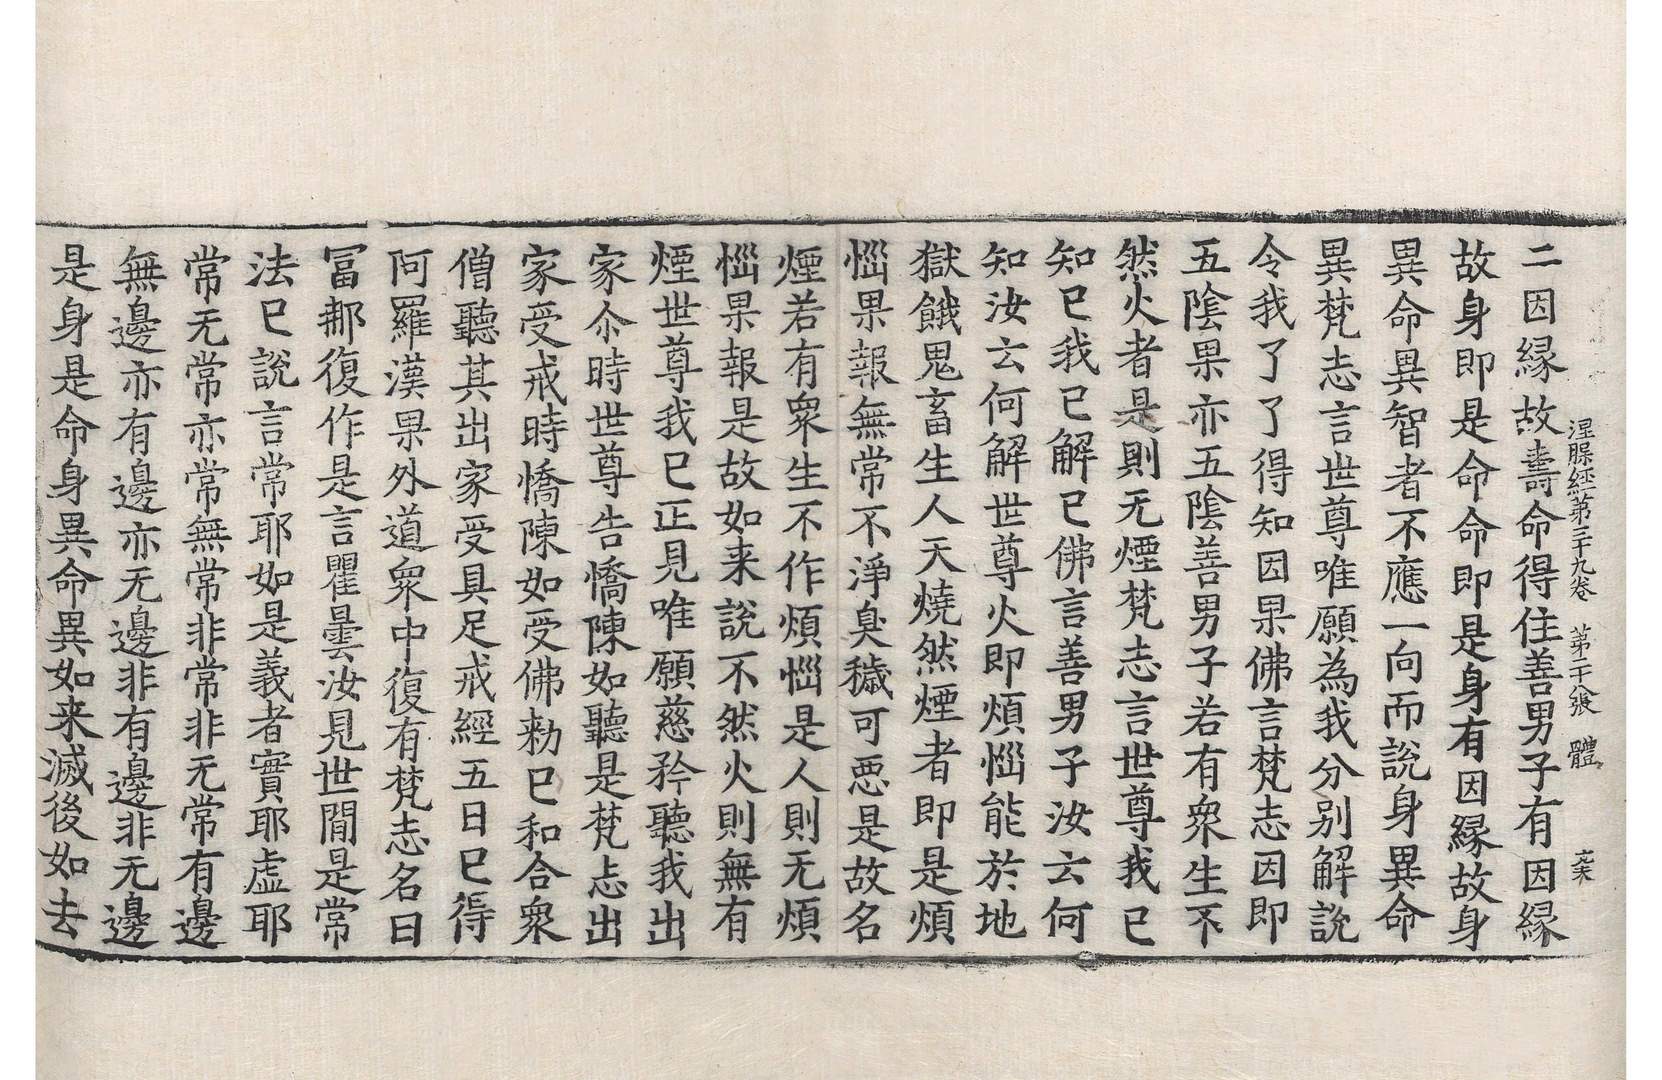 涅槃經第三十九卷 第二十張 體
二因縁故壽命得住善男子有因縁
故身即是命命即是身有因縁故身
異命異智者不應一向而說身異命
異梵志言世尊唯願為我分别解說
令我了了得知因果佛言梵志因即
五陰果亦五陰善男子若有衆生不
然火者是則无煙梵志言世尊我已
知已我已解已佛言善男子汝云何
知汝云何解世尊火即煩惱能於地
獄餓鬼畜生人天燒然煙者即是煩
惱果報無常不淨臭穢可惡是故名
煙若有衆生不作煩惱是人則无煩
惱果報是故如来說不然火則無有
煙世尊我已正見唯願慈矜聽我出
家尒時世尊告憍陳如聽是梵志出
家受戒時憍陳如受佛勑已和合衆
僧聽其出家受具足戒經五日已得
阿羅漢果外道衆中復有梵志名曰
冨那復作是言瞿曇汝見世間是常
法已說言常耶如是義者實耶虛耶
常无常亦常無常非常非无常有邊
無邊亦有邊亦无邊非有邊非无邊
是身是命身異命異如来滅後如去